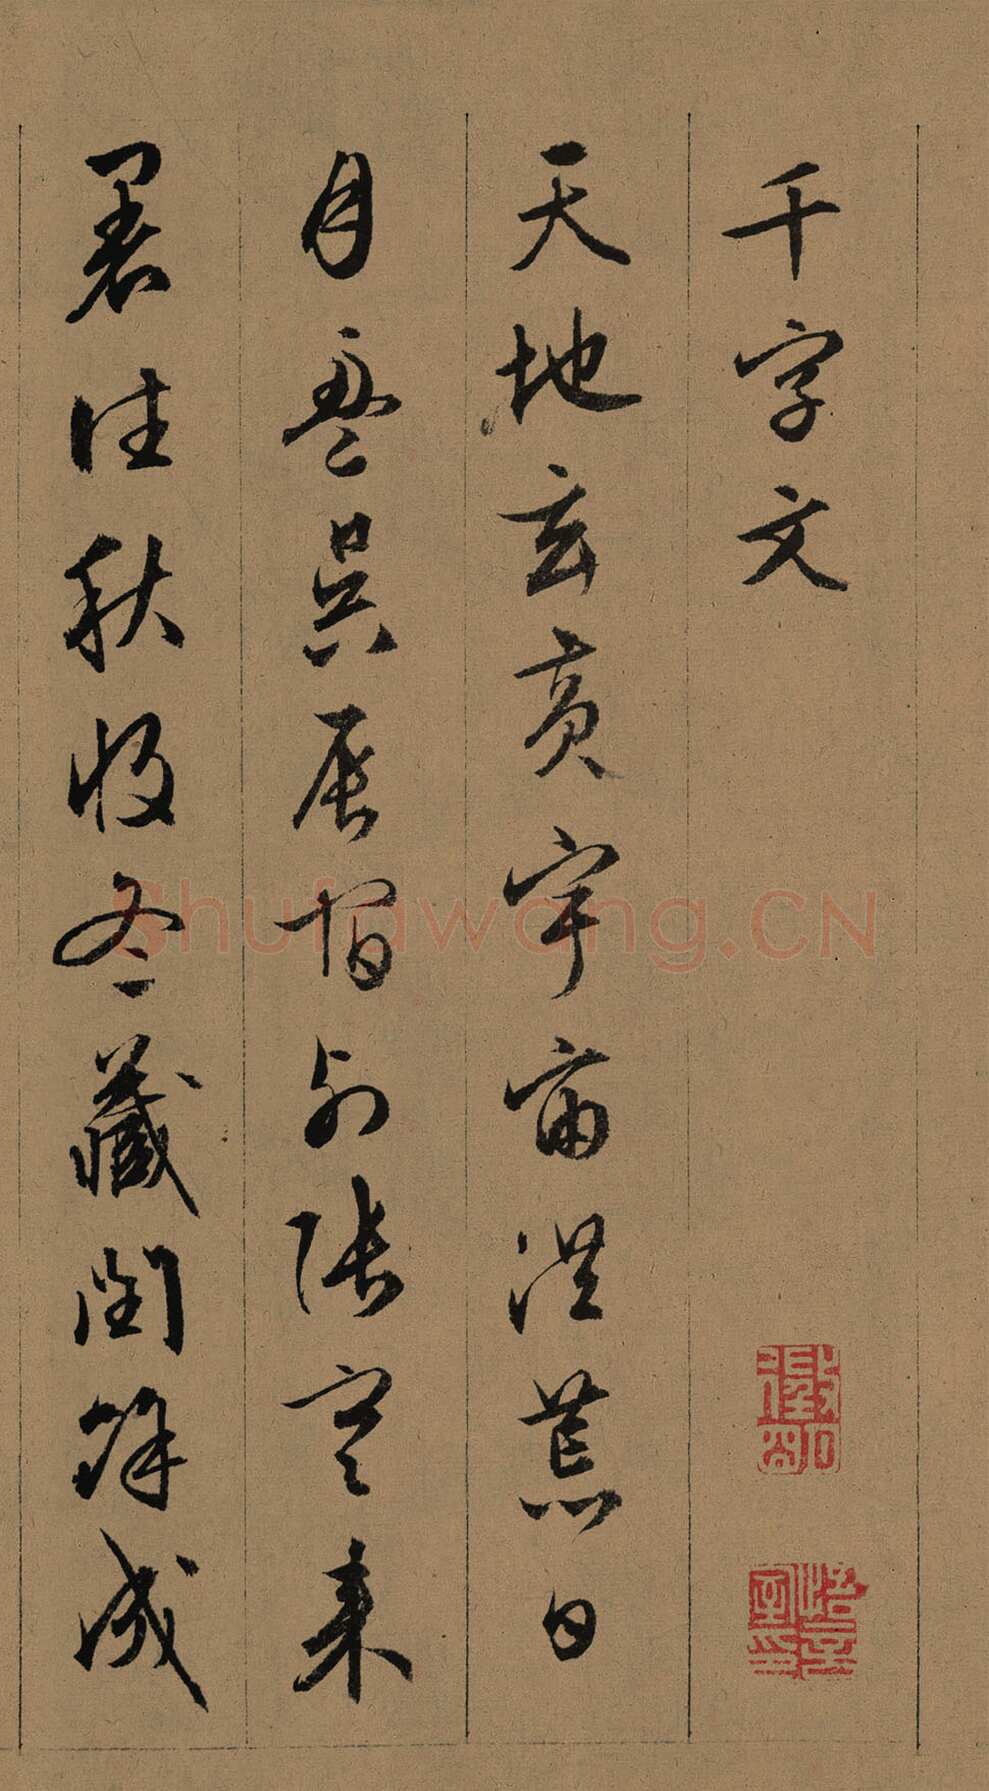 千字文
天地玄黃宇宙洪荒日
月盈昃辰宿列張寒来
暑往秋收冬藏閏餘成
Shufawang.CN